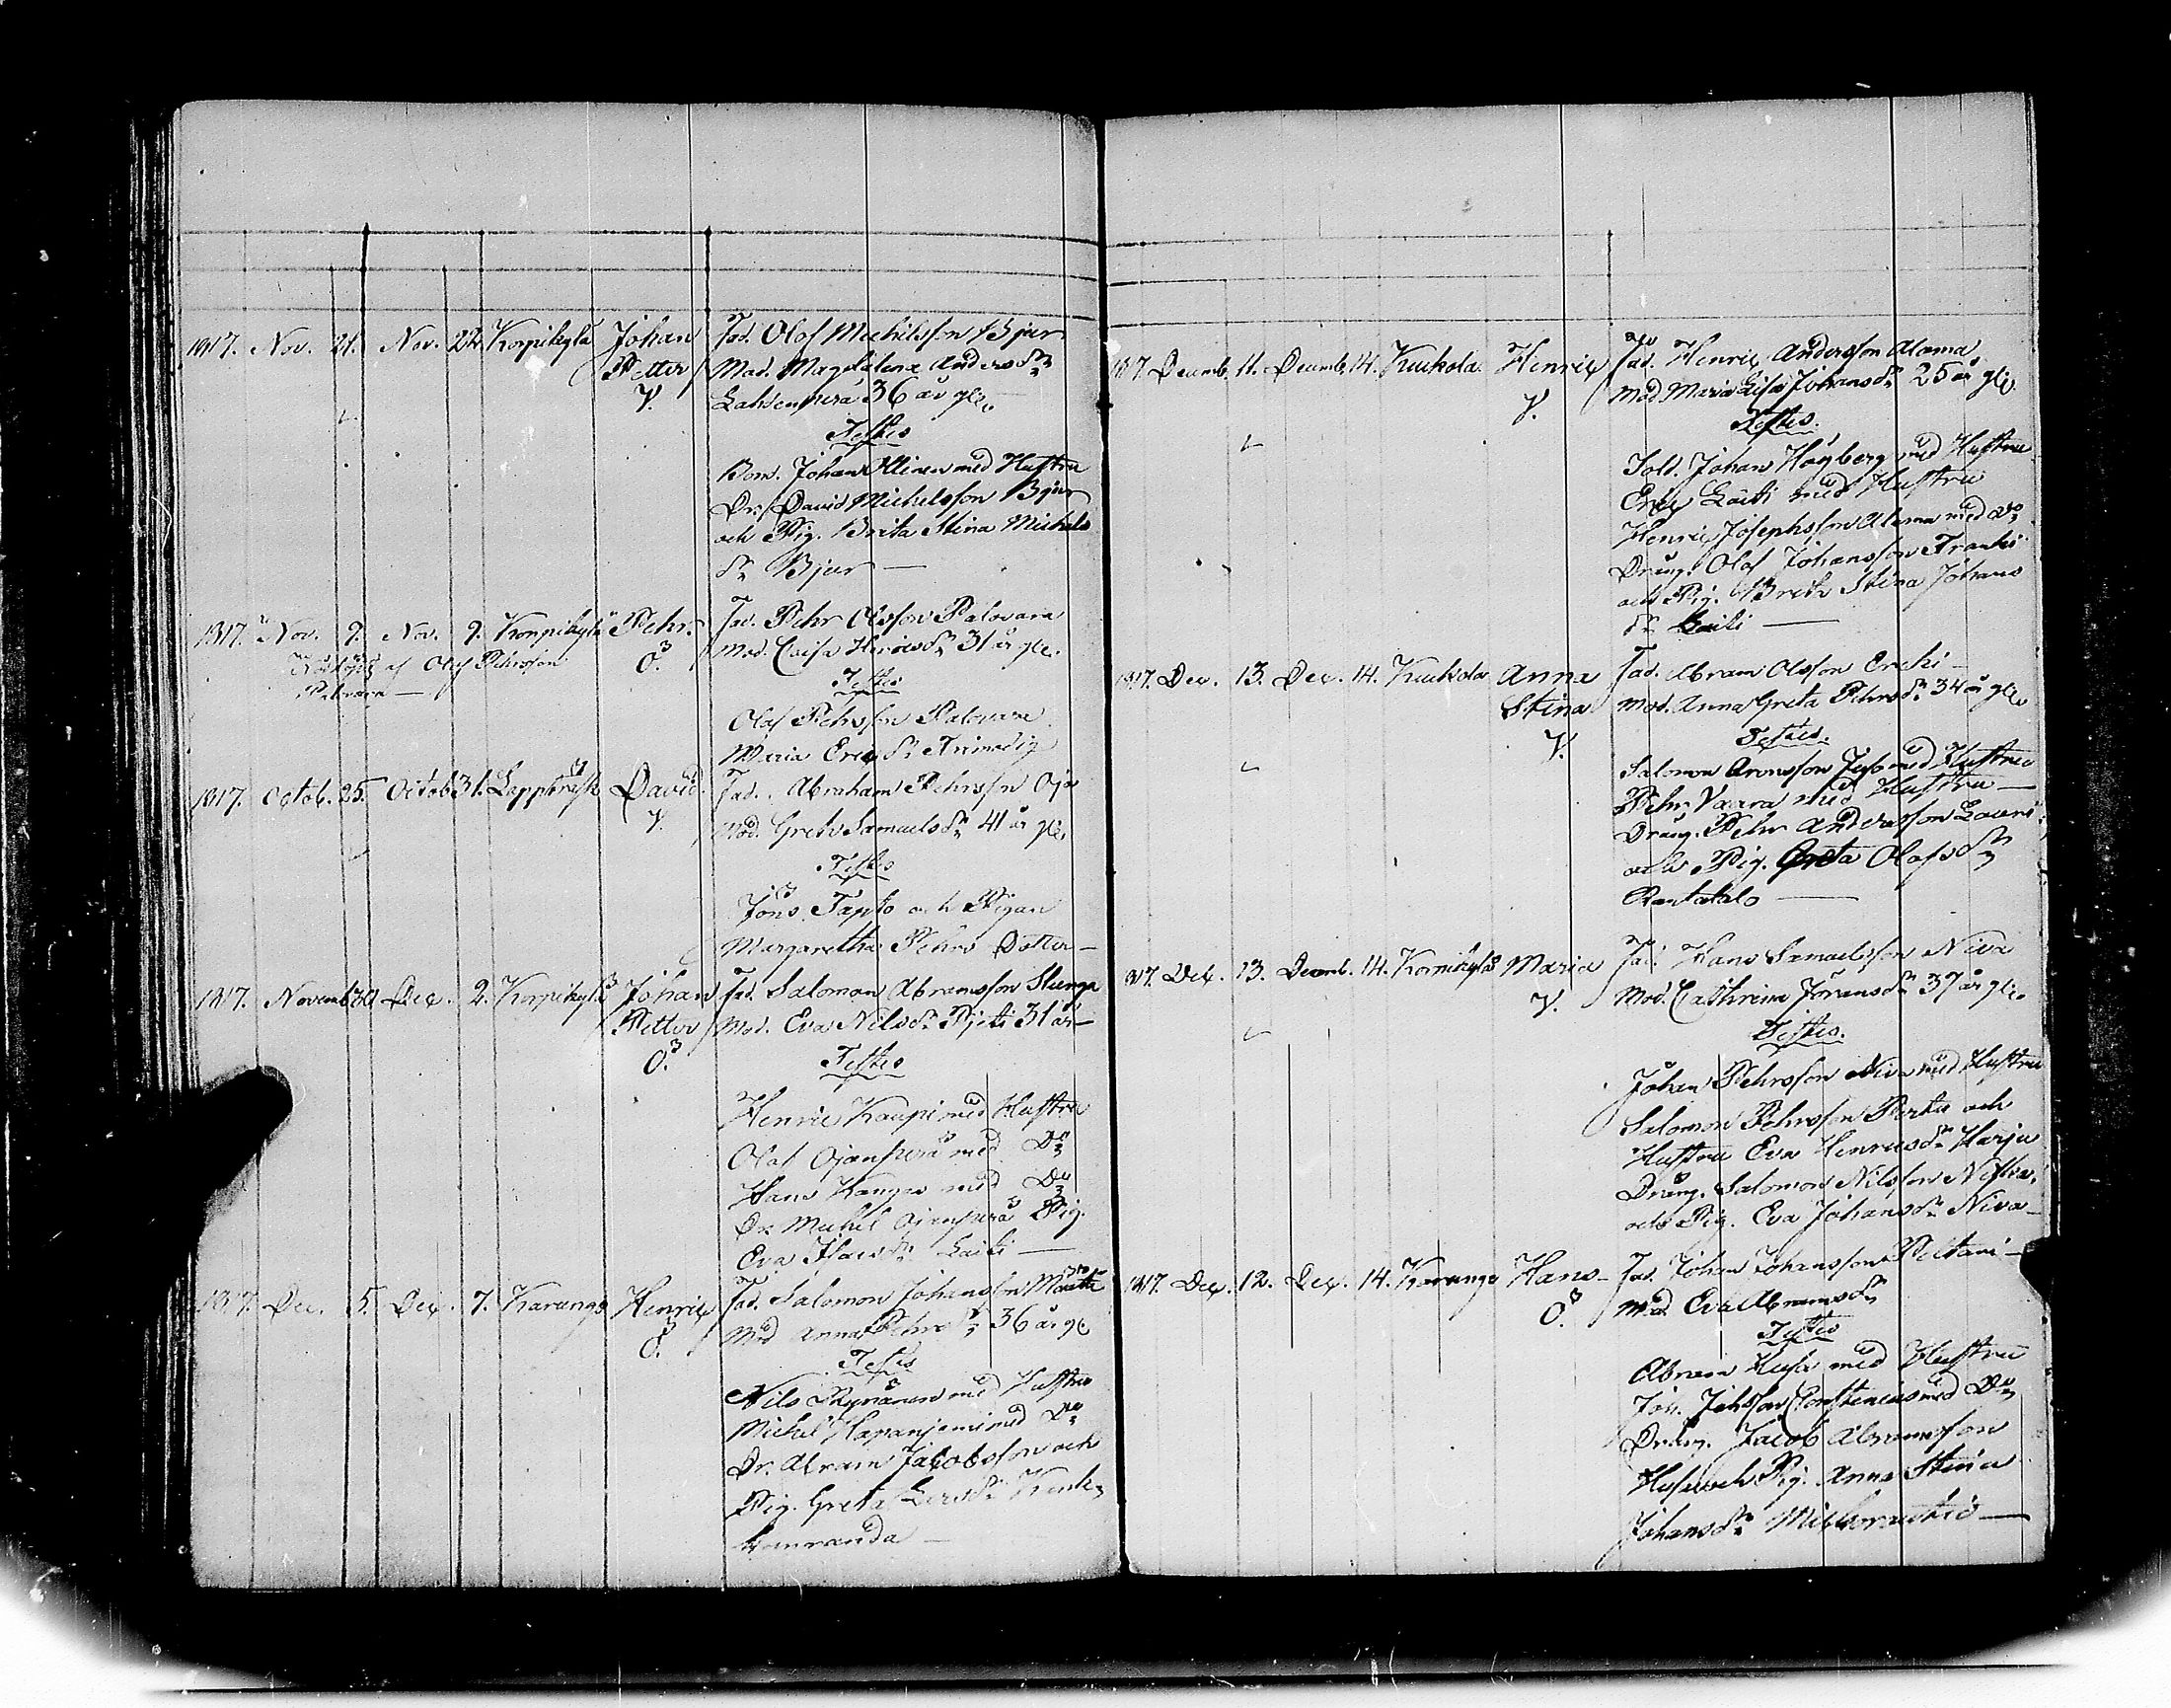 1817. Nov. 21. Nov. 22. Korpikylä Johan Fad. Olof Michilsson Bjur
Petter Mod. Magdalena Andersdr
V. Lahdenperä 36 år gl.
Testes
Bon. Johan med Hustru
Dr. David Michelsson Bjur
och Pig. Brita Stina Michels
dr Bjur —
1817. Nov. 9. Nov. 9. Korpikylä Pehr. Fad. Pehr Olsson Palovara
Nöddöpt af Olof Pehrsson O. Mod. Caisa Henricsdr 31 år gl.
Palovara — Testes
Olof Pehrsson Palovara
Maria Ericsdr
1817. Octob. 25. Octob 31. Lappträsk David. Fad. Abraham Pehrsson Oja
V. Mod. Greta Samuelsdr 41 år gl.
Testes
Jöns Tapio och Pigan
Margaretha Pehrs Dotter —
1817. Novemb 30. Dec. 2. Korpikylä Johan Fad. Salomon Abramsson Slunga
Petter Mod. Eva Nilsdr 31 år —
O. Testes
Henric Kaupi med Hustru
Olof Ojanperä med Do
Hans Kangas med Do
Dr. Michel Ojanperä Pig.
Eva Isacsdr Laiti —
1817. Dec. 5. Dec. 7. Karungi Henric Fad. Salomon Johansson
O. Mod Anna Pehrsdr 36 år gl
Testes
Nils med Hustru
Michel Hapaniemi med Do
Dr. Abram Jacobsson och
Pig. Greta Larsdr
randa —
1817. Decemb. 11. Decemb. 14. Kukkola Henric Fad. Henric Andersson Alama
V. Mod. Maria Lisa Johansdr 25 år gl.
Testes.
Sold. Johan Högberg med Hustru
Eric Laiti med Hustru
Henric Josephsson Alama med Do
Dräng. Olof Johansson Franki
och Pig. Brita Stina Johans
dr Laiti —
1817. Dec. 13. Dec. 14. Kukkola Anna Fad. Abram Olsson Erchi —
Stina Mod. Anna Greta Pehrsdr 34 år gl.
V. Testes.
Salomon Aronsson Juso med Hustru
Pehr Vaara med Hustru —
Dräng. Pehr Andersson Lauri
och Pig. Greta Olofsdr
Rantatalo —
1817. Dec. 13. Decemb. 14. Korpikylä Maria Fad. Hans Samuelsson Niva
V. Mod. Cathrina Göransdr 37 år gl.
Testes.
Johan Pehrsson Niva med Hustru
Salomon Pehrsson och
Hustru Eva Henricsdr Harju
Dräng. Salomon Nilsson
och Pig. Eva Johansdr Niva —
1817. Dec. 12. Dec. 14. Karungi Hans — Fad. Johan Johansson —
O. Mod. Eva Abramsdr
Testes
Abram Husa med Hustru
Joh. Johsson med Do
Dräng. Jacob Abramsson
Husa och Pig. Anna Stina
Johansdr —